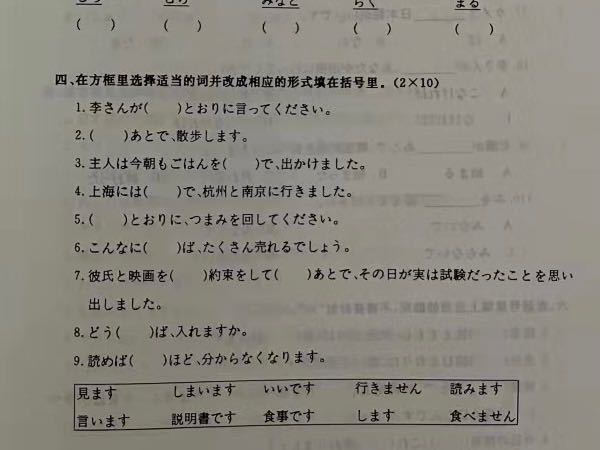 ( ) ( ) ( ) ( ) ( )
四、在方框里选择适当的词并改成相应的形式填在括号里。(2×10)
1. 李さんが( )とおりに言ってください。
2. ( )あとで、散歩します。
3. 主人は今朝もごはんを( )で、出かけました。
4. 上海には( )で、杭州と南京に行きました。
5. ( )とおりに、つまみを回してください。
6. こんなに( )ば、たくさん売れるでしょう。
7. 彼氏と映画を( )約束をして( )あとで、その日が実は試験だったことを思い
出しました。
8. どう( )ば、入れますか。
9. 読めば( )ほど、分からなくなります。
見ます しまいます いいです 行きません 読みます
言います 説明書です 食事です します 食べません